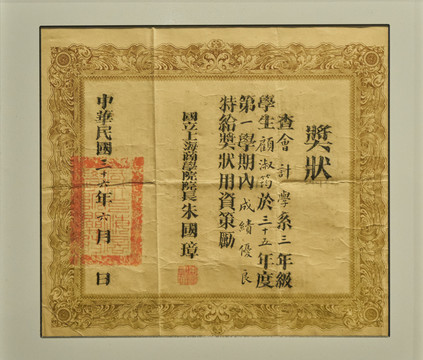 獎狀
查會計學系三年級
學生顧淑筠於三十五年度
第一學期內成績優良
特給獎狀用資策勵
國立上海商學院院長朱國璋
中華民國三十六年六月 日